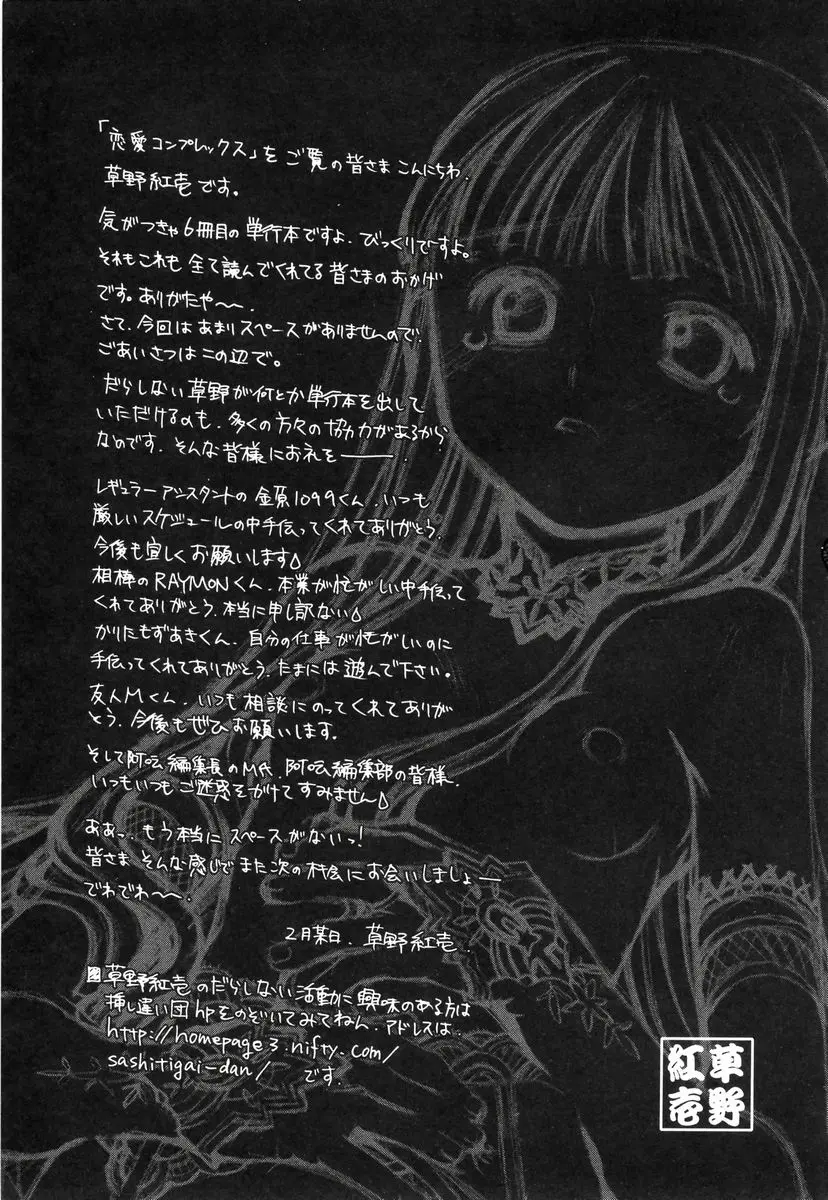 「恋愛コンプレックス」をご覧の皆さまこんにちわ.
草野紅壱です。
気がつきゃ6冊目の単行本ですよ.びっくりですよ。
それもこれも全て読んでくれてる皆さまのおかげ
です。ありがたや〜〜.
さて、今回はあまりスペースがありませんので.
ごあいさつはこの辺で。
だらしない草野が何とか単行本を出して
いただけるのも、多くの方々の協力があるから
なのです.そんな皆様にお礼を――.
レギュラーアシスタントの金原1099くん.いつも
厳しいスケジュールの中手伝ってくれてありがとう.
今後も宜しくお願いします
相棒のRAYMONくん.本業が忙がしい中手伝って
くれてありがとう.本当に申し訳ない
かりたもずあきくん.自分の仕事が忙がしいのに
手伝ってくれてありがとう.たまには遊んで下さい。
友人Mくん.いつも相談にのってくれてありが
とう.今後もぜひお願いします.
そして阿吽編集長のM氏.阿吽編集部の皆様.
いつもいつもご迷惑をがけてすみません
ああっ.もう本当にスペースがないっ!
皆さまそんな感じでまた次の機会にお会いしましょー
でわでわ〜〜.
2月某日.草野紅壱.
草野紅壱のだらしない活動に興味のある方は
挿し違い団hpをのぞいてみてねん.アドレスは.
http://homepage3.nifty.com/
sashitigai-dan/ です.
草野
紅壱